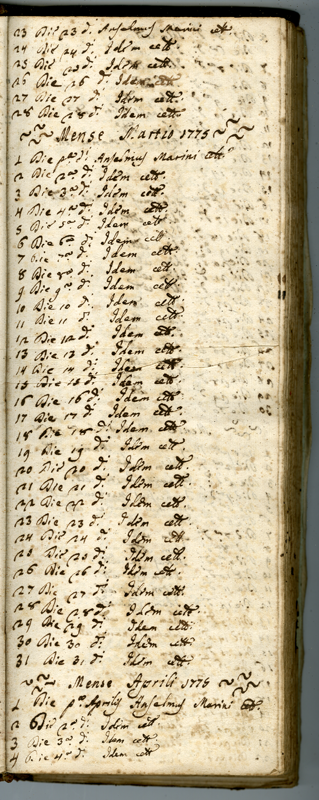 23 Die 23 d.ᵗⁱ Anselmus Marini cett.
24 Die 24 d.ⁱ Idem cett.
25 Die 25 d.ⁱ Idem cett.
26 Die 26 d.ⁱ Idem cett.
27 Die 27 d.ⁱ Idem cett.
28 Die 28 d.ⁱ Idem cett.
Mense Martio 1775
1 Die pᵃ d.ⁱ Anselmus Marini cett.
2 Die 2ᵃ d.ⁱ Idem cett.
3 Die 3ᵃ d.ⁱ Idem cett.
4 Die 4ᵃ d.ⁱ Idem cett.
5 Die 5ᵃ d.ⁱ Idem cett.
6 Die 6ᵃ d.ⁱ Idem cett.
7 Die 7ᵃ d.ⁱ Idem cett.
8 Die 8ᵃ d.ⁱ Idem cett.
9 Die 9ᵃ d.ⁱ Idem cett.
10 Die 10 d.ⁱ Idem cett.
11 Die 11 d.ⁱ Idem cett.
12 Die 12 d.ⁱ Idem cett.
13 Die 13 d.ⁱ Idem cett.
14 Die 14 d.ⁱ Idem cett.
15 Die 15 d.ⁱ Idem cett.
16 Die 16 d.ⁱ Idem cett.
17 Die 17 d.ⁱ Idem cett.
18 Die 18 d.ⁱ Idem cett.
19 Die 19 d.ⁱ Idem cett.
20 Die 20 d.ⁱ Idem cett.
21 Die 21 d.ⁱ Idem cett.
22 Die 22 d.ⁱ Idem cett.
23 Die 23 d.ⁱ Idem cett.
24 Die 24 d.ⁱ Idem cett.
25 Die 25 d.ⁱ Idem cett.
26 Die 26 d.ⁱ Idem cett.
27 Die 27 d.ⁱ Idem cett.
28 Die 28 d.ⁱ Idem cett.
29 Die 29 d.ⁱ Idem cett.
30 Die 30 d.ⁱ Idem cett.
31 Die 31 d.ⁱ Idem cett.
Mense Aprili 1775
1 Die pᵃ Aprilis Anselmus Marini cett.
2 Die 2ᵃ d.ⁱ Idem cett.
3 Die 3ᵃ d.ⁱ Idem cett.
4 Die 4ᵃ d.ⁱ Idem cett.